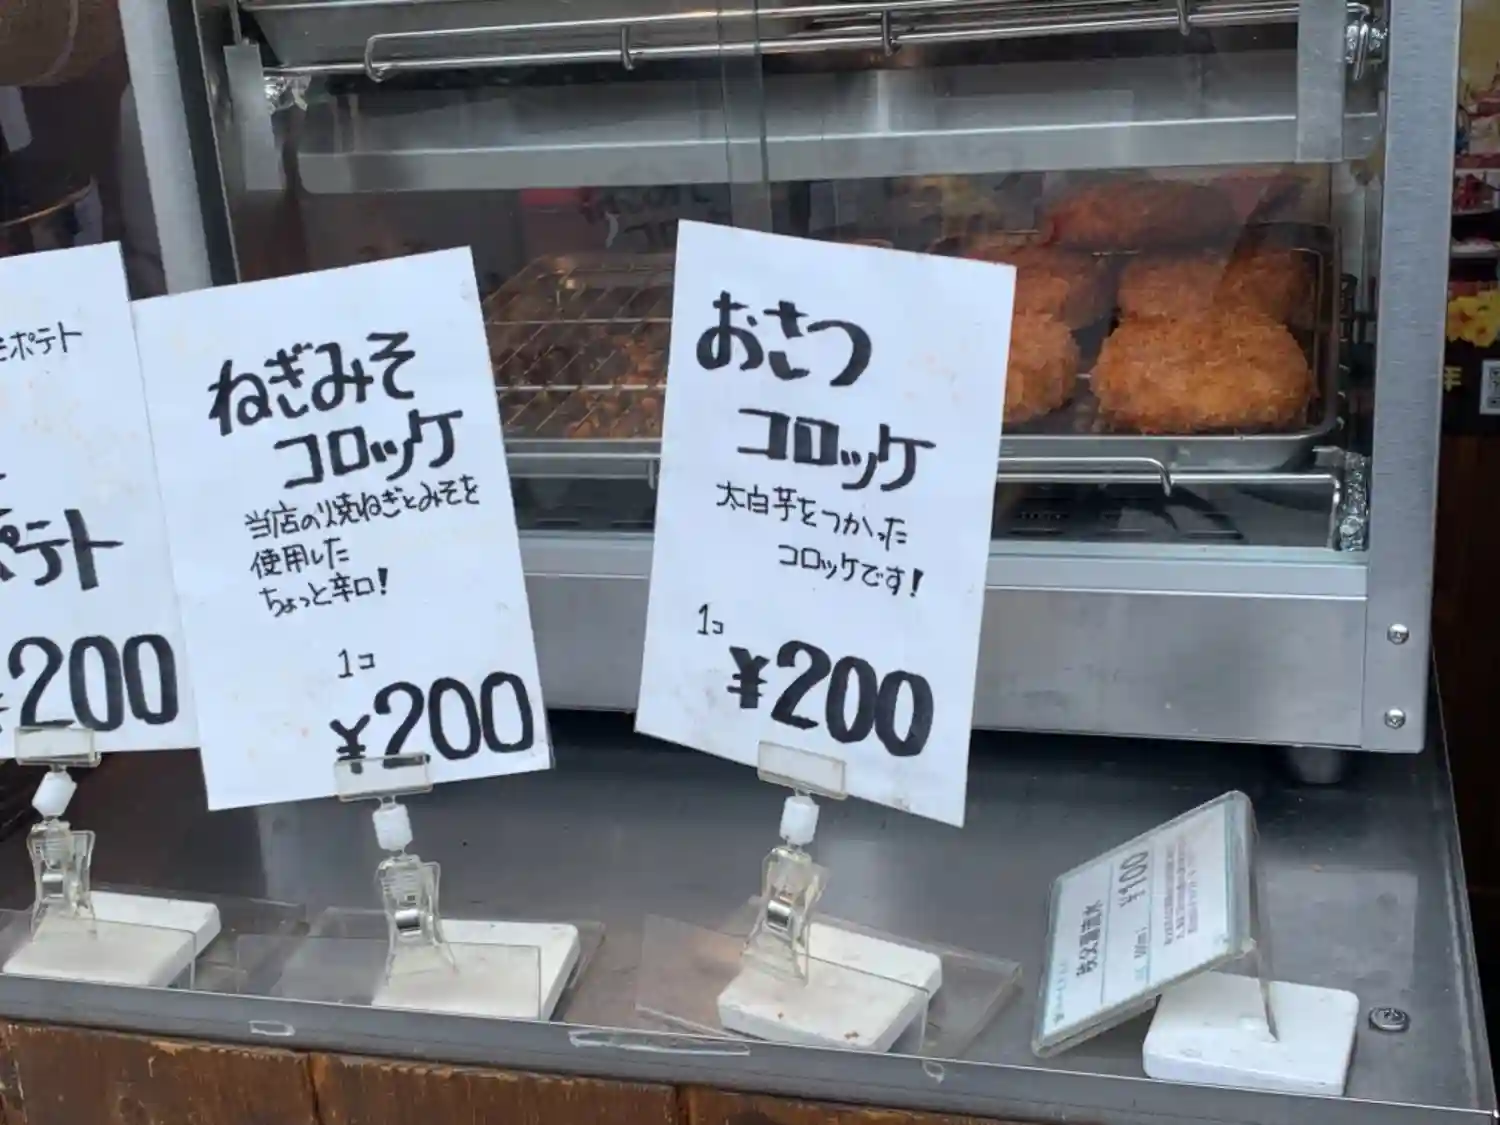 ポテト
ポテト
¥200
ねぎみそ
コロッケ
当店の焼ねぎとみそを
使用した
ちょっと辛口!
1コ
¥200
おさつ
コロッケ
太白芋をつかった
コロッケです!
1コ
¥200
¥100